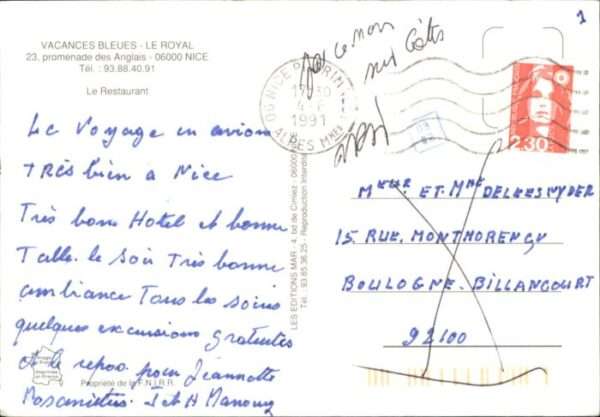 VACANCES BLEUES - LE ROYAL
23, promenade des Anglais - 06000 NICE
Tél. : 93.88.40.91
Le Restaurant
Le Voyage en avion
TRÈS bien à Nice
Très bon Hotel et bonne
Table. le Soir Très bonne
ambiance Tous les soirs
quelques excursions gratuites
et le repos pour Jeannette
Propriété de la F.N.I.R.R.
LES EDITIONS MAR - 4, bd de Cimiez - 06000
93.85.36.25 - Reproduction interdite
06 NICE
17 30
4 - 6
1991
ALPES MMES
ce nom
côtés
2,30
1
ET. MME DELEESNYDER
15, RUE. MONTMORENCY
BOULOGNE. BILLANCOURT
92100